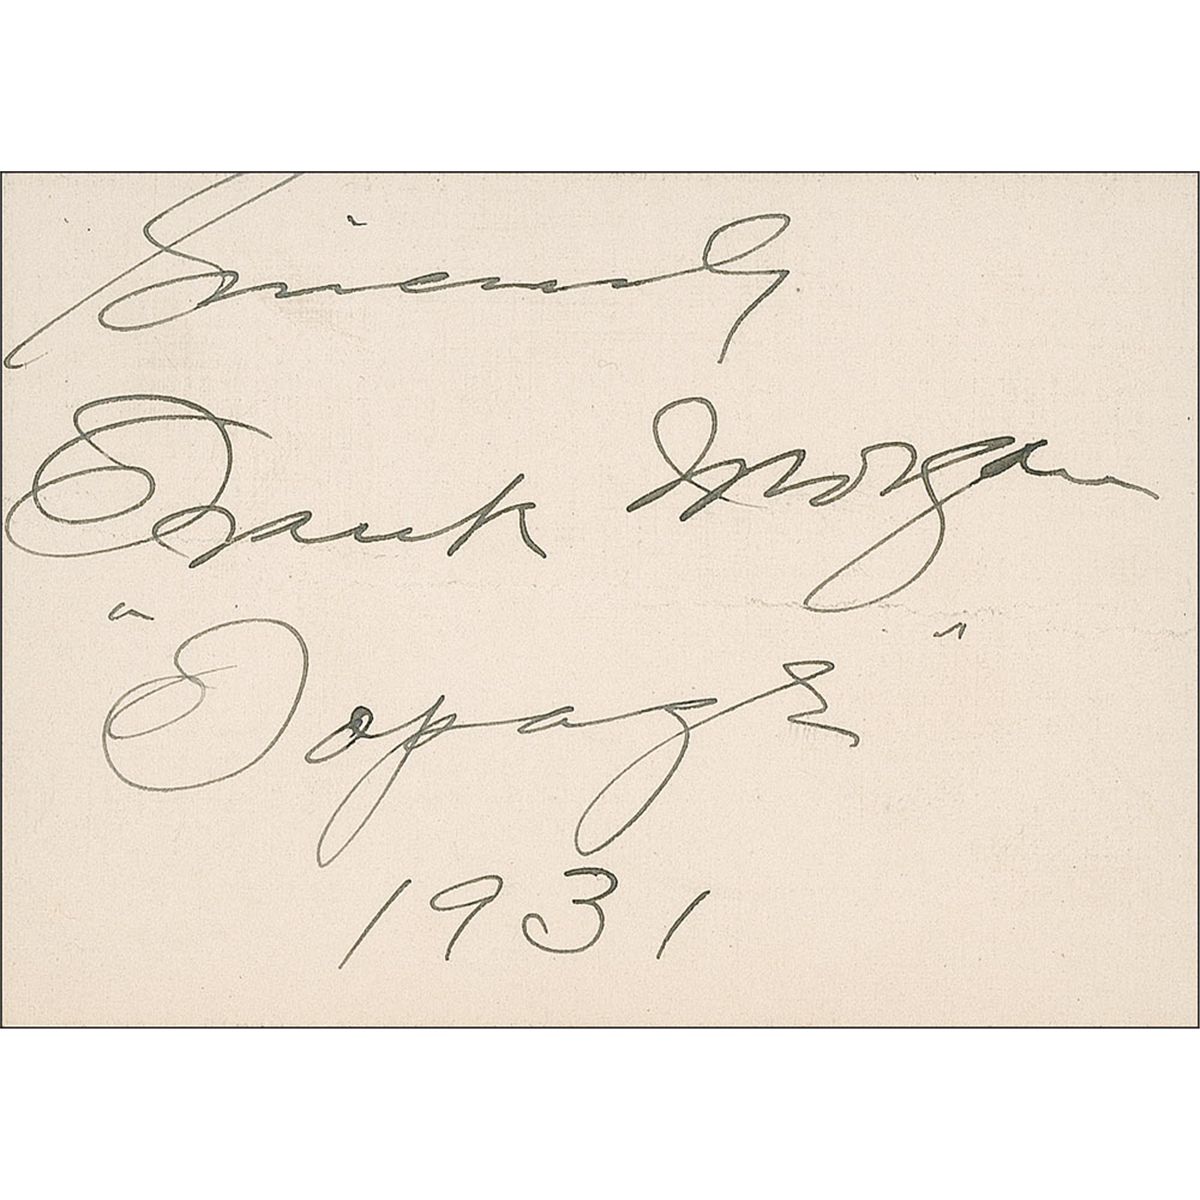 Sincerely
Frank Morgan
"Topaze"
1931